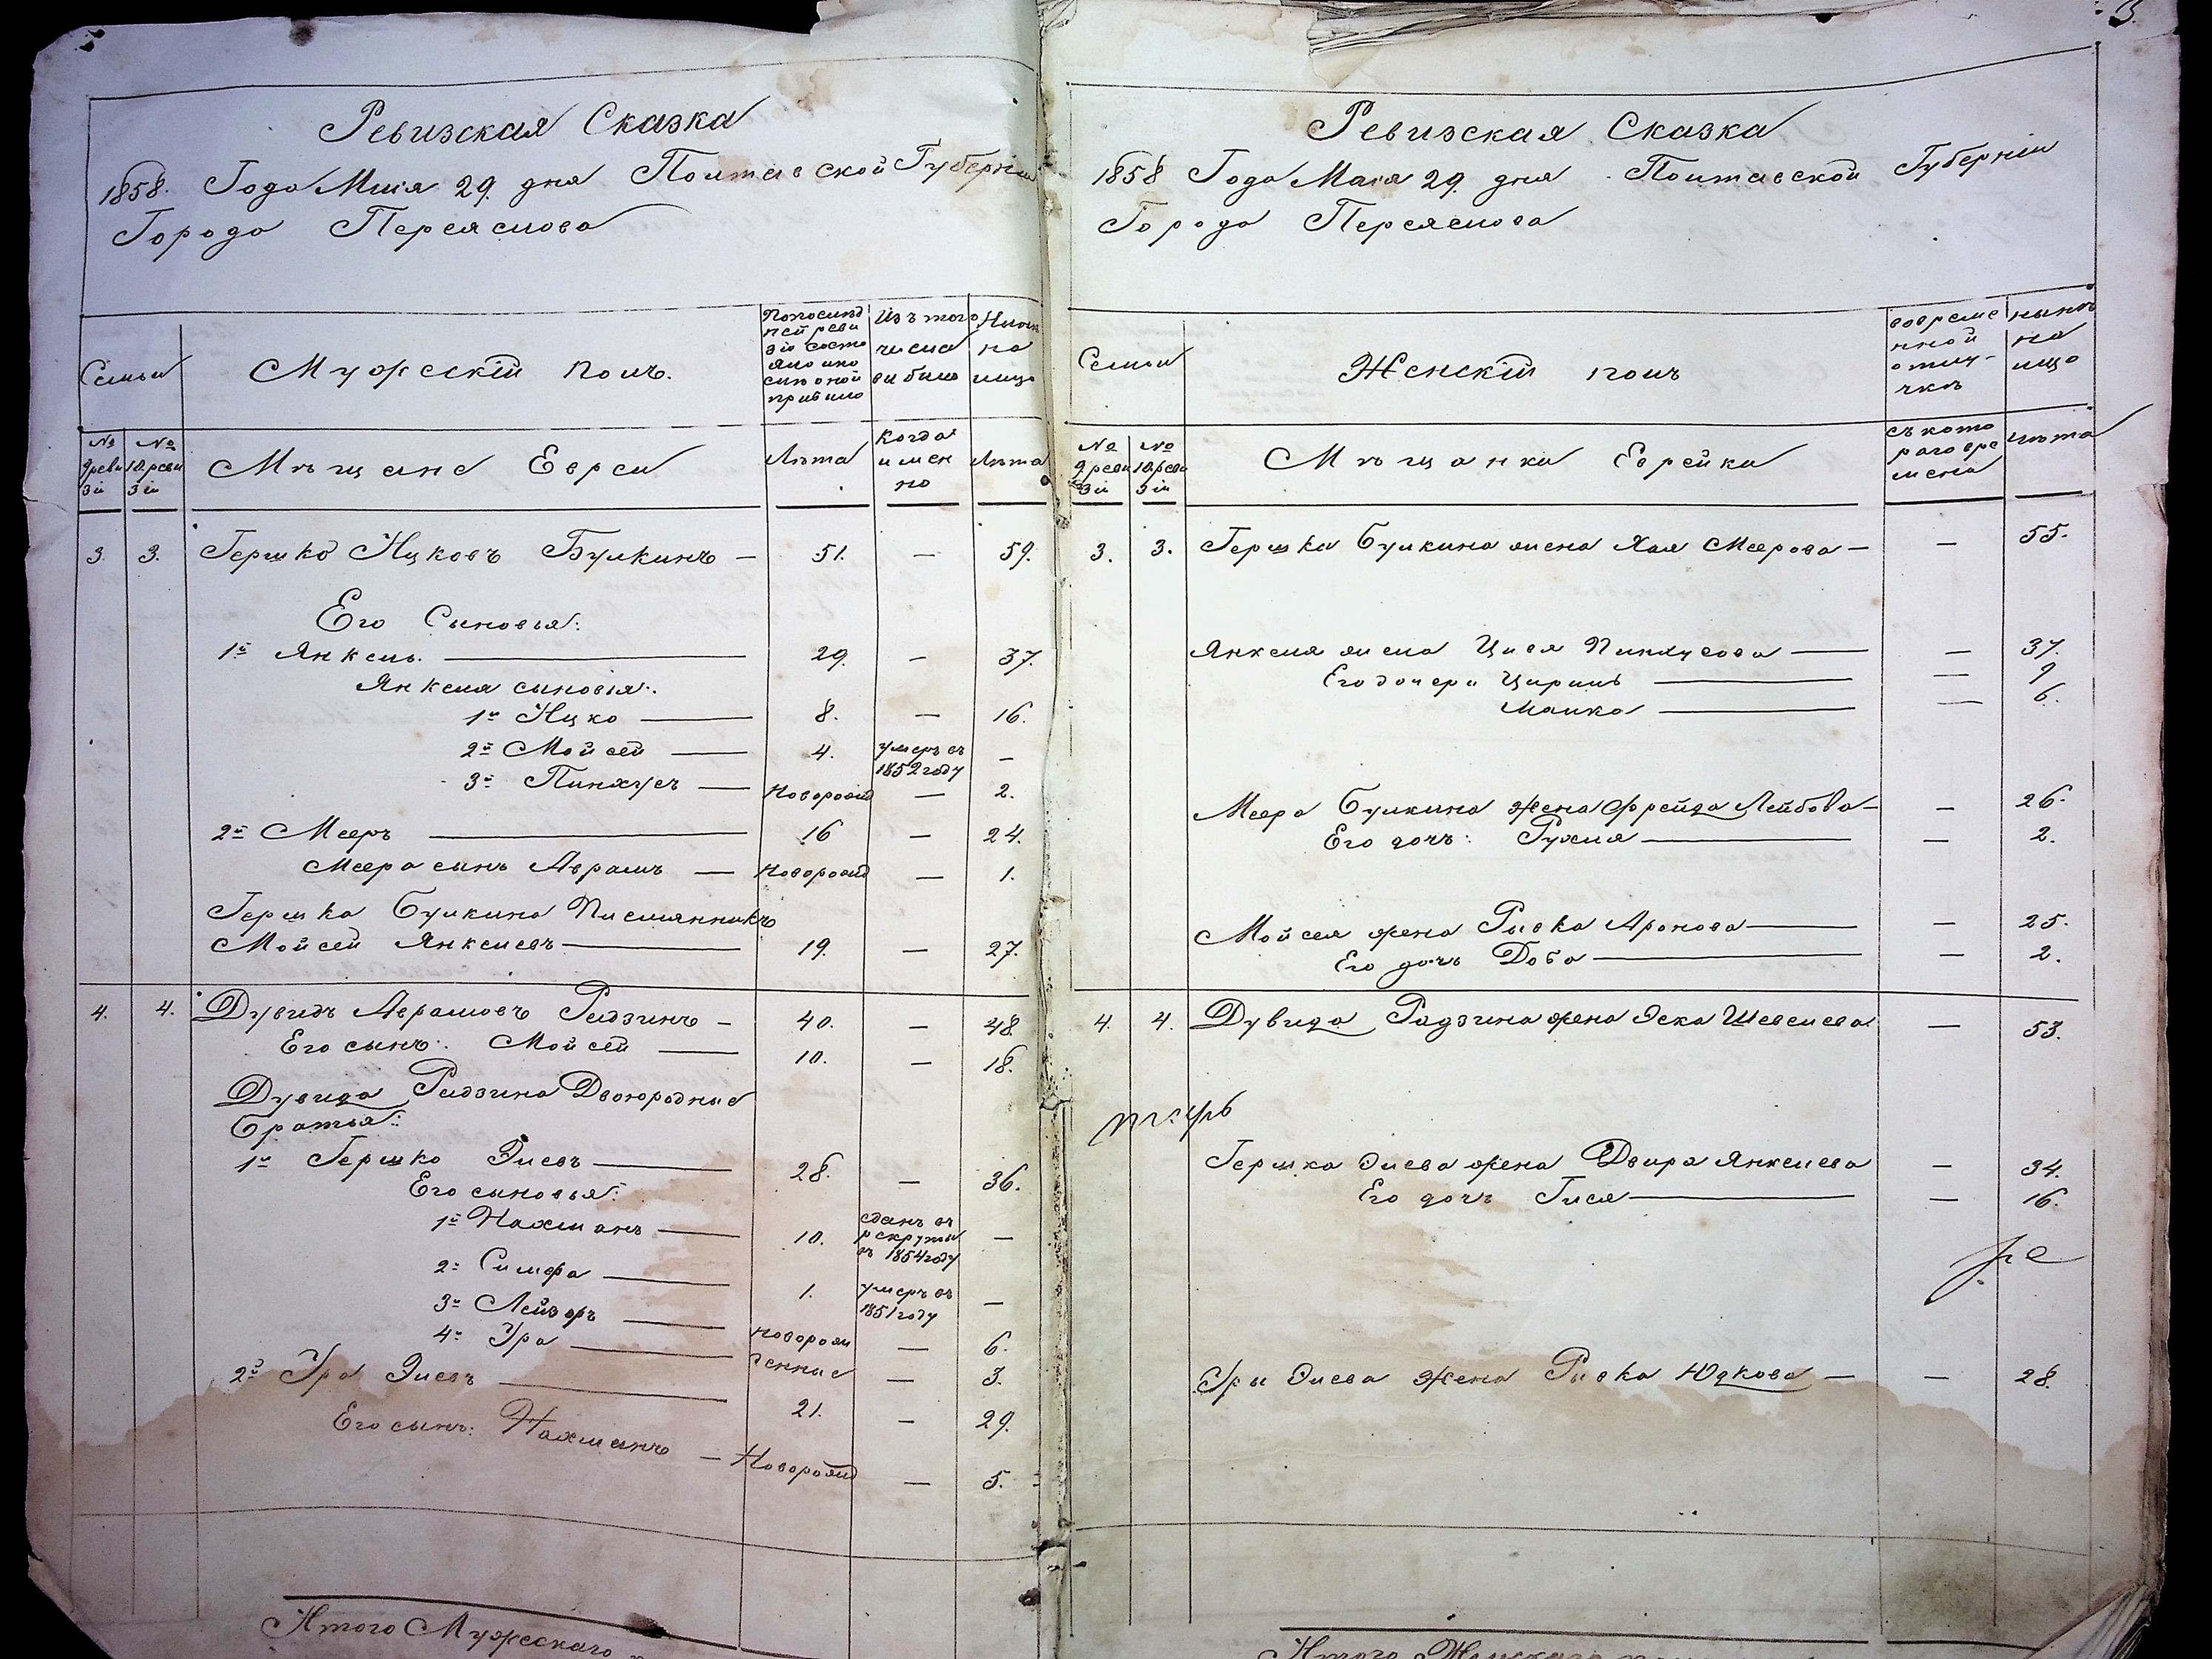 Ревизская Сказка
1858. Года Маія 29. дня Полтавской Губерніи
Города Переяслова
Семьи
Мужескій полъ.
По послѣд
ней реви
зіи состо
яло или
послѣ оной
прибыло
Изъ того
числа
выбыло
Нынѣ
на
лицо
№
9 реви
зіи
№
10. реви
зіи
Мѣщане Евреи
Лѣта
Когда
имен
но
Лѣта
3. 3. Гершко Ицковъ Булкинъ — 51. — 59.
Его Сыновья:
1й Янкель. — 29. — 37.
Янкеля сыновья:
1й Ицко — 8. — 16.
2й Мойсей — 4. умеръ въ
1852 году —
3й Пинхусъ — новорожд — 2.
2й Мееръ — 16 — 24.
Меера сынъ Аврамъ — новорожд — 1.
Гершка Булкина Племянникъ
Мойсей Янкелевъ — 19. — 27.
4. 4. Дувидъ Аврамовъ Радзинъ — 40. — 48.
Его сынъ: Мойсей — 10. — 18.
Дувида Радзина Двоюродные
Братья:
1й Гершко Элевъ — 28. — 36.
Его сыновья:
1й Нахманъ — 10. сданъ въ
рекруты
въ 1854 году —
2й Симха — 1. умеръ въ
1851 году —
3й Лейзоръ — новорож — 6.
4й Ура — денные — 3.
2й Ура Элевъ — 21. — 29.
Его сынъ: Нахманъ — Новорожд — 5.
Итого Мужескаго
3.
Ревизская Сказка
1858 Года Маія 29. дня Полтавской Губерніи
Города Переяслова
Семьи
Женскій полъ
во време
нной
отлу-
чкѣ
нынѣ
на
лицо
№
9 реви
зіи
№
10. реви
зіи
Мѣщанки Еврейки
съ кото
раго вре
мени
лѣта
3. 3. Гершка Булкина жена Хая Меерова — — 55.
Янкеля жена Цивя Пинхусова — — 37.
Его дочери Циринъ — — 9
Малка — — 6.
Меера Булкина жена Фрейда Лейбова — — 26.
Его дочь: Рухля — — 2.
Мойсея жена Ривка Аронова — — 25.
Его дочь Доба — — 2.
4. 4. Дувида Радзина жена Эска Шевелева — 53.
Гершка Элева жена Двира Янкелева — 34.
Его дочь Гися — — 16.
Уры Элева жена Ривка Юдкова — — 28.
Итого Женскаго